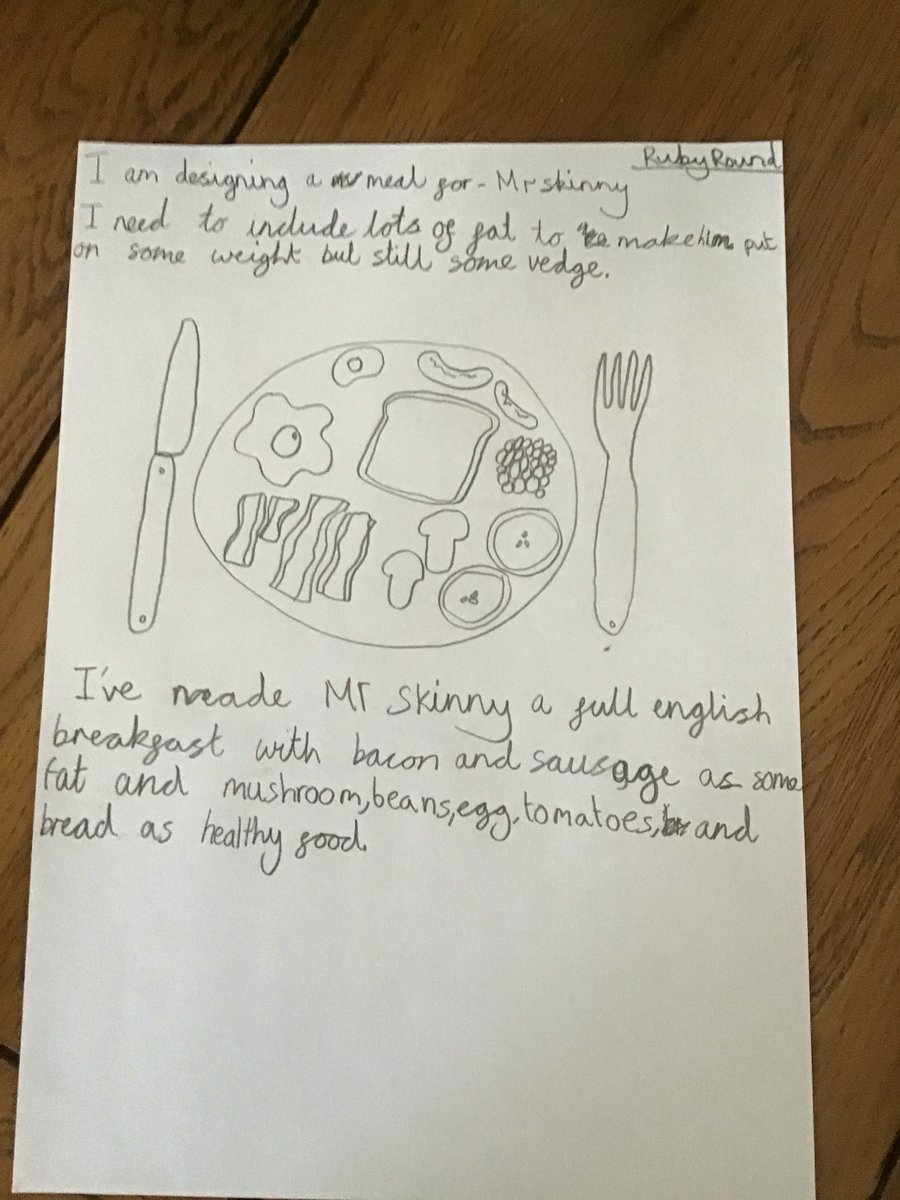 Ruby Round
I am designing a meal for - Mr skinny
I need to include lots of fat to make him put
on some weight but still some vedge.
I've made Mr Skinny a full english
breakfast with bacon and sausage as some
fat and mushroom, beans, egg, tomatoes, and
bread as healthy food.